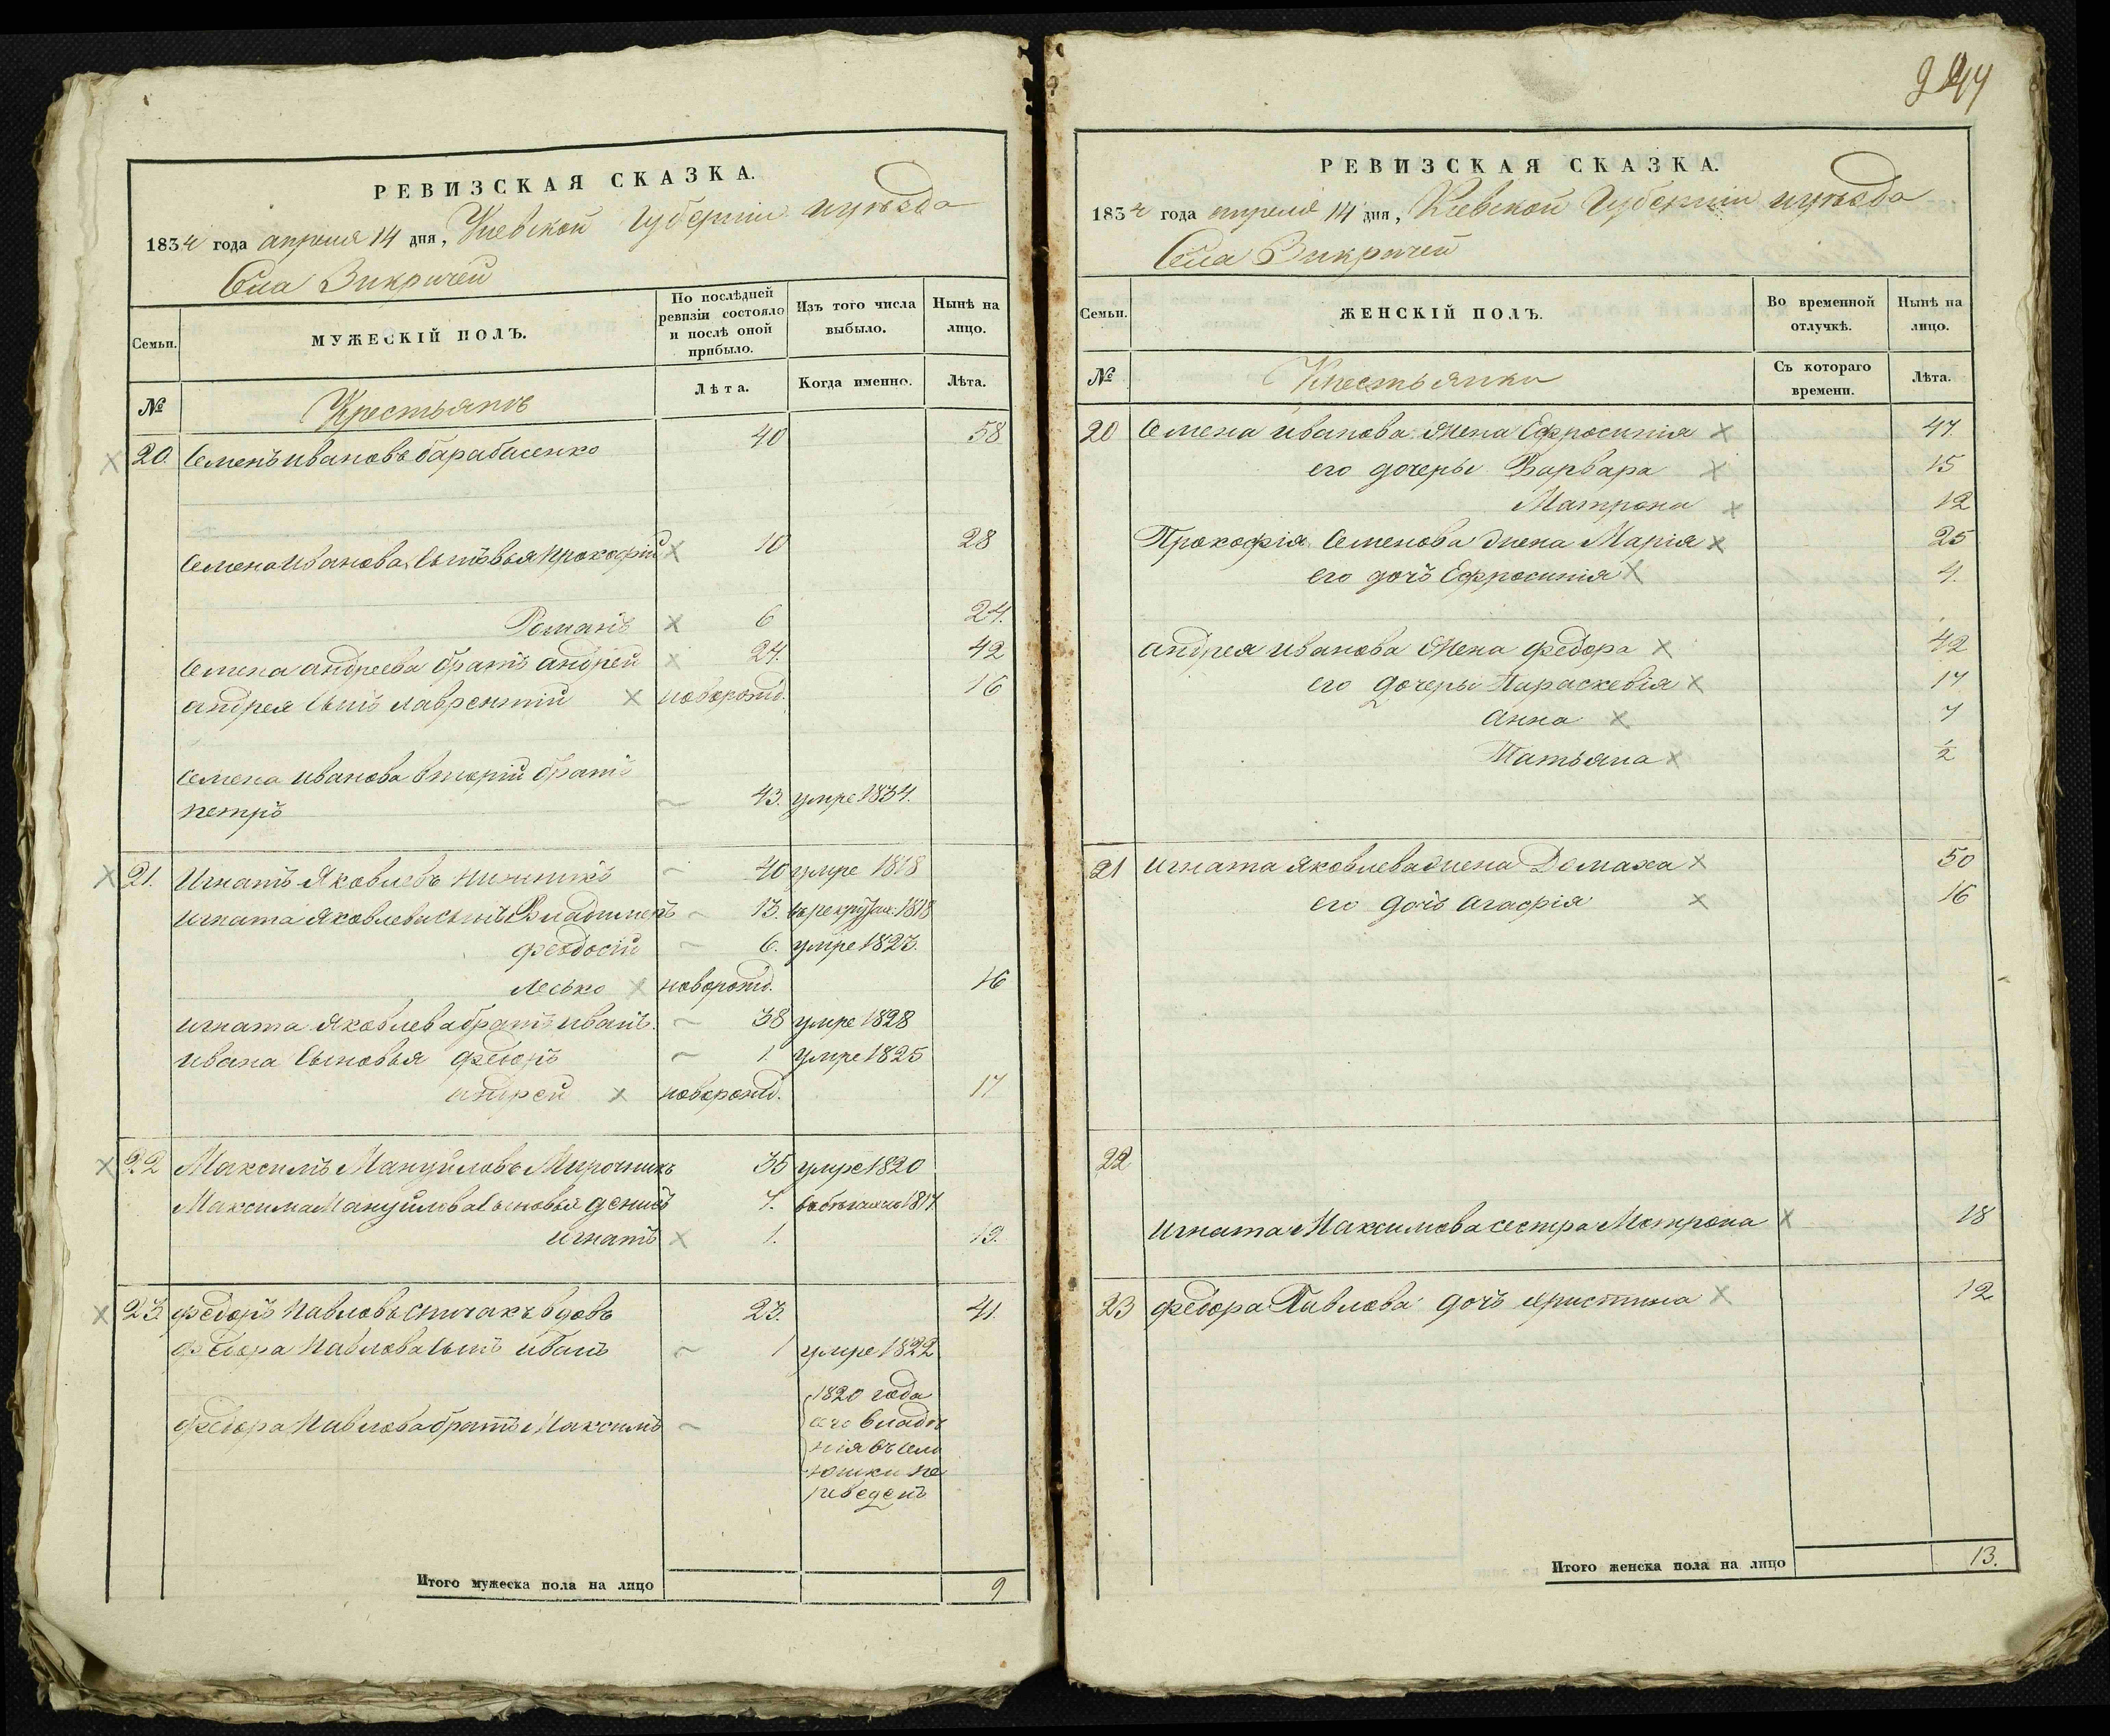 РЕВИЗСКАЯ СКАЗКА.
1834 года апреля 14 дня, Киевской Губернии и уѣзда
Села Викричей
Семьи. МУЖЕСКІЙ ПОЛЪ. По послѣдней ревизіи состояло и послѣ оной прибыло. Изъ того числа выбыло. Нынѣ на лицо.
№ Крестьянъ Лѣта. Когда именно. Лѣта.
20. Семенъ Ивановъ барабасенко 40 58
Семена Иванова Сыновья Прокофій 10 28
Романъ 6 24.
Семена андреева братъ андрей 24. 42
андрея Сынъ лаврентій новорожд. 16
Семена Иванова вторій братъ
петръ 43. умре 1834.
21. Игнатъ Яковлевъ 40 умре 1818
Игната Яковлева Сынъ Владимеръ 13. 1818
феодосій 6. умре 1823.
лесько новорожд. 16
игната яковлева братъ иванъ. 38 умре 1828
ивана Сыновья федоръ 1. умре 1825
андрей новорожд. 17
22 Максимъ Мануйловъ Мирочникъ 35 умре 1820
Максима Мануйлова Сыновья денисъ 7. 1817
игнатъ 1. 19.
23. федоръ Павловъ спичакъ вдовъ 23. 41.
федора Павлова Сынъ иванъ 1 умре 1822
1820 года
федора Павлова братъ Максимъ владѣ
нія въ село
юшки пе
реведенъ
Итого мужеска пола на лицо 9
244
РЕВИЗСКАЯ СКАЗКА.
1834 года апреля 14 дня, Киевской Губерніи и уѣзда
Села Викричей
Семьи. ЖЕНСКІЙ ПОЛЪ. Во временной отлучкѣ. Нынѣ на лицо.
№ Крестьянки Съ котораго времени. Лѣта.
20 Семена иванова жена Ефросинія 47.
его дочеры Варвара 15
Матрона 12
Прокофія Семенова жена Марія 25
его дочь Ефросинія 4.
андрея иванова жена федора 42
его дочеры Параскевія 17
анна 7
Татьяна ½
21 игната яковлева жена Домаха 50
его дочь агафія 16
22
игната Максимова сестра Мотрона 18
23 федора Павлова дочь христина 12
Итого женска пола на лицо 13.